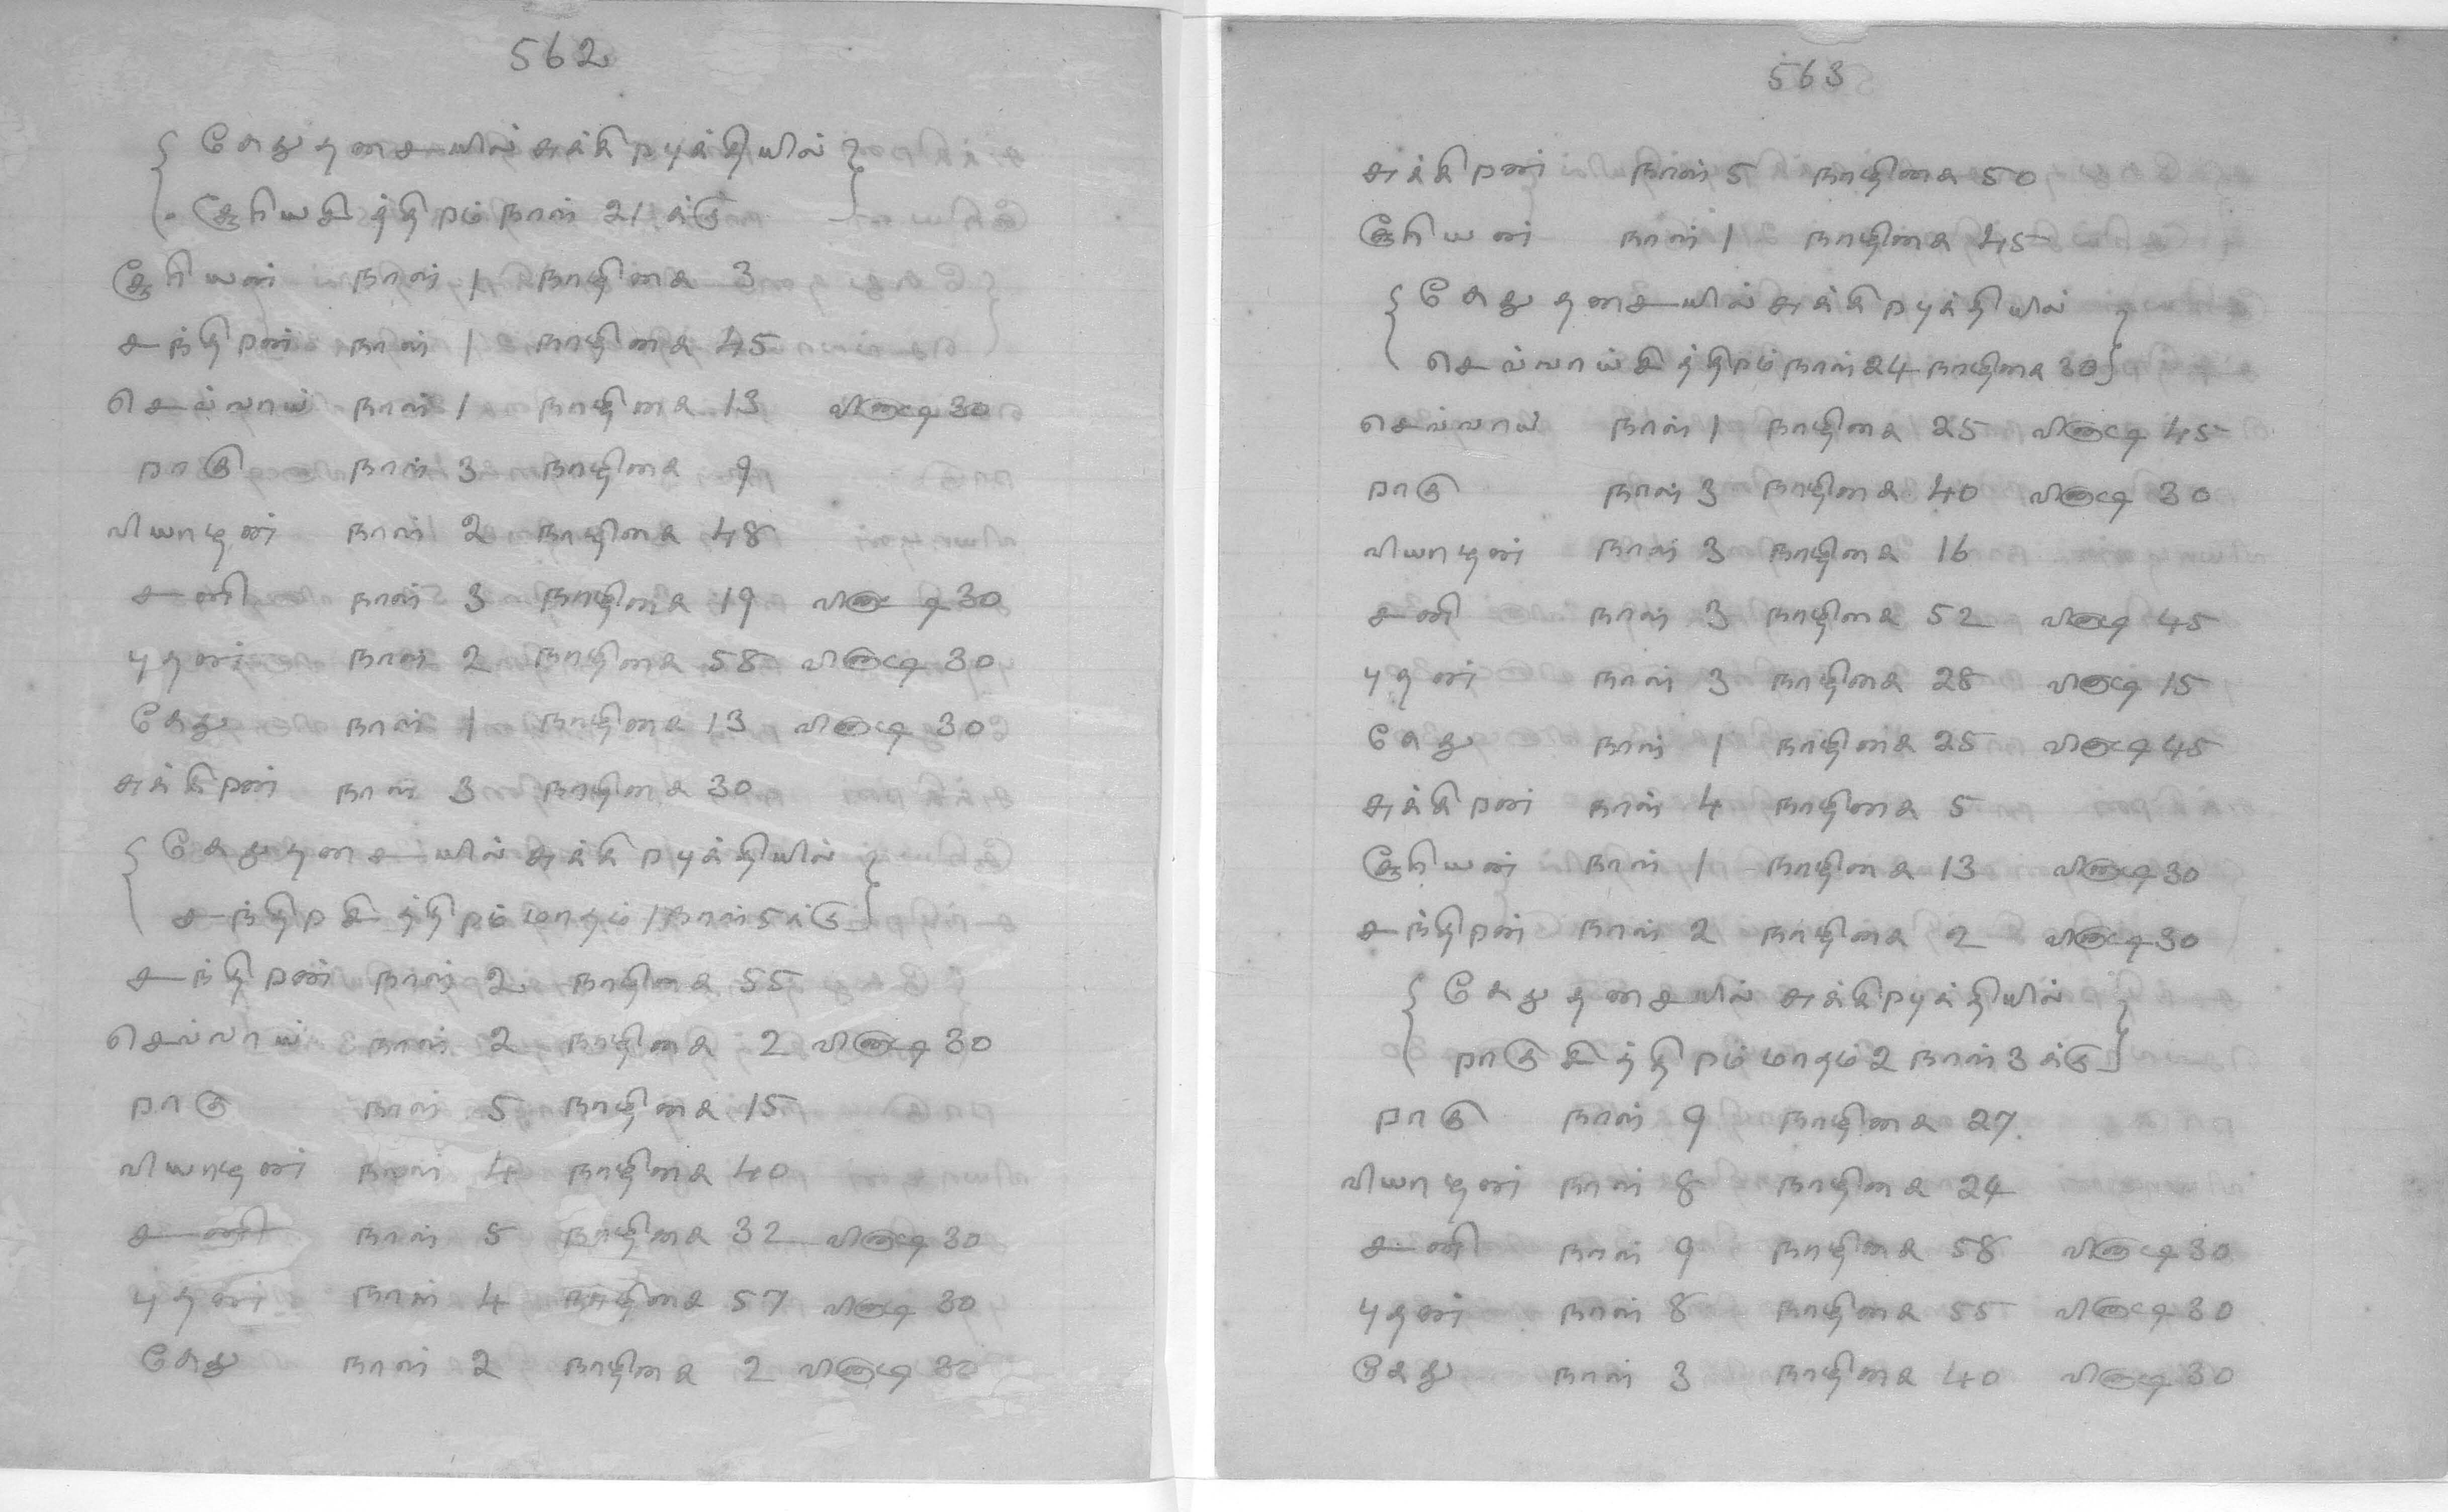 562
கேது தசையில் சுக்கிர புக்தியில்
சூரிய சித்திரம் நாள் 21 க்கு
சூரியன் நாள் 1 நாழிகை 3
சந்திரன் நாள் 1 நாழிகை 45
செவ்வாய் நாள் 1 நாழிகை 13 விநாடி 30
ராகு நாள் 3 நாழிகை 9
வியாழன் நாள் 2 நாழிகை 48
சனி நாள் 3 நாழிகை 19 விநாடி 30
புதன் நாள் 2 நாழிகை 58 விநாடி 30
கேது நாள் 1 நாழிகை 13 விநாடி 30
சுக்கிரன் நாள் 3 நாழிகை 30
கேது தசையில் சுக்கிர புக்தியில்
சந்திர சித்திரம் மாதம் 1 நாள் 5 க்கு
சந்திரன் நாள் 2 நாழிகை 55
செவ்வாய் நாள் 2 நாழிகை 2 விநாடி 30
ராகு நாள் 5 நாழிகை 15
வியாழன் நாள் 4 நாழிகை 40
சனி நாள் 5 நாழிகை 32 விநாடி 30
புதன் நாள் 4 நாழிகை 57 விநாடி 30
கேது நாள் 2 நாழிகை 2 விநாடி 30
563
சுக்கிரன் நாள் 5 நாழிகை 50
சூரியன் நாள் 1 நாழிகை 45
கேது தசையில் சுக்கிர புக்தியில்
செவ்வாய் சித்திரம் நாள் 24 நாழிகை 30
செவ்வாய் நாள் 1 நாழிகை 25 விநாடி 45
ராகு நாள் 3 நாழிகை 40 விநாடி 30
வியாழன் நாள் 3 நாழிகை 16
சனி நாள் 3 நாழிகை 52 விநாடி 45
புதன் நாள் 3 நாழிகை 28 விநாடி 15
கேது நாள் 1 நாழிகை 25 விநாடி 45
சுக்கிரன் நாள் 4 நாழிகை 5
சூரியன் நாள் 1 நாழிகை 13 விநாடி 30
சந்திரன் நாள் 2 நாழிகை 2 விநாடி 30
கேது தசையில் சுக்கிர புக்தியில்
ராகு சித்திரம் மாதம் 2 நாள் 3 க்கு
ராகு நாள் 9 நாழிகை 27.
வியாழன் நாள் 8 நாழிகை 24
சனி நாள் 9 நாழிகை 58 விநாடி 30
புதன் நாள் 8 நாழிகை 55 விநாடி 30
கேது நாள் 3 நாழிகை 40 விநாடி 30